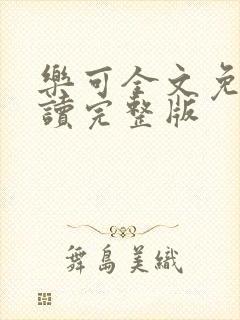 樂可全文免
讀完整版
舞島美織